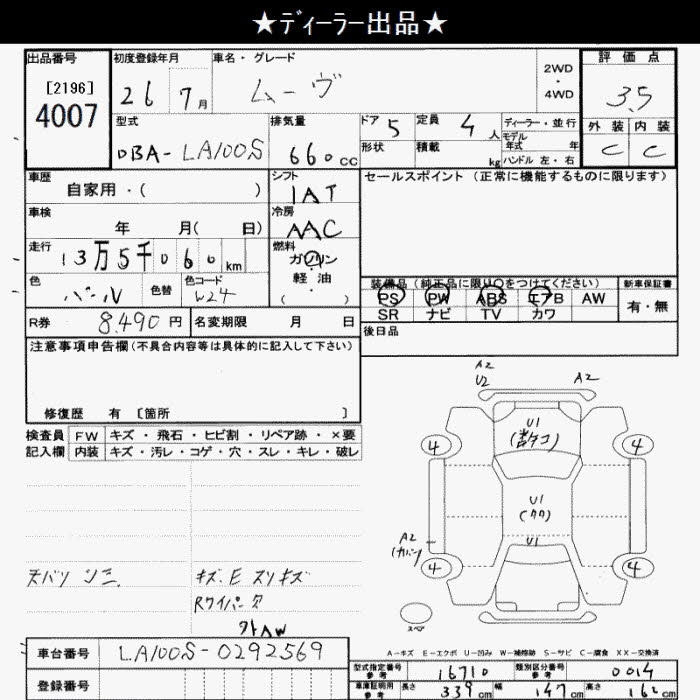 ★ディーラー出品★
出品番号 初度登録年月 車名・グレード 評価点
[2196]
4007
26 7月 ムーヴ 2WD・4WD 3.5
型式 排気量 ドア 5 定員 4人 ディーラー・並行 外装 内装
モデル年式 年
DBA-LA100S 660cc 形状 積載 kg ハンドル 左・右 C C
車歴 シフト セールスポイント(正常に機能するものに限ります)
自家用・( ) IAT
車検 冷房
年 月( 日) AAC
走行 燃料
13万5千060km ガソリン・軽油
( ・ )
色 色替 色コード 装備品(純正品に限り○をつけてください) 新車保証書
パール W24 PS PW ABS エアB AW 有・無
SR ナビ TV カワ
R券 8,490円 名変期限 月 日 後日品
注意事項申告欄(不具合内容等は具体的に記入して下さい)
修復歴 有 [箇所 ]
検査員 FW キズ・飛石・ヒビ割・リペア跡・×要
記入欄 内装 キズ・汚レ・コゲ・穴・スレ・キレ・破レ
A2
U2 A2
U1
4 4
U1
(タタ)
A2 U1
4 4
スペア
天バリ シミ キズ.E スリキズ
Rワイパー欠
外AW
A-キズ E-エクボ U-凹み W-補修跡 S-サビ C-腐食 XX-交換済
車台番号 LA100S-0292569
型式指定番号 参考 16710 類別区分番号 参考 0014
登録番号 車庫証明用 参考 長さ 339cm 幅 147cm 高さ 16 cm